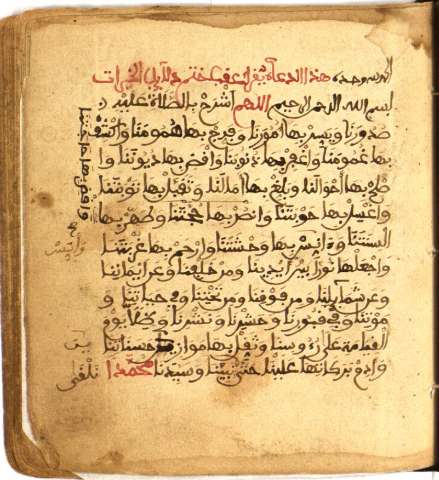 الحمد لله وحده هذا الدعاء يقرأ عقب ختم دلايل الخيرات
بسم الله الرحمن الرحيم اللهم اشرح بالصلاة عليه
صدورنا ويسر بها امورنا وفرج بها همومنا واكشف
بها غمومنا واغفر بها ذنوبنا واقض بها ديوننا وا
صلح بها احوالنا وبلغ بها امالنا وتقبل بها توبتنا
واغسل بها حوبتنا وانصر بها حجتنا وطهر بها
السنتنا وءانس بها وحشتنا وارحم بها غربتنا
واجعلها نورا بين ايدينا ومن خلفنا وعن ايماننا
وعن شمايلنا ومن فوقنا ومن تحتنا وفي حياتنا و
موتنا وفي قبورنا وحشرنا ونشرنا وظلا يوم
القيامة على رءوسنا وثقل بها موازين حسناتنا
وادم بركاتها علينا حتى نبينا وسيدنا محمدا نلقى